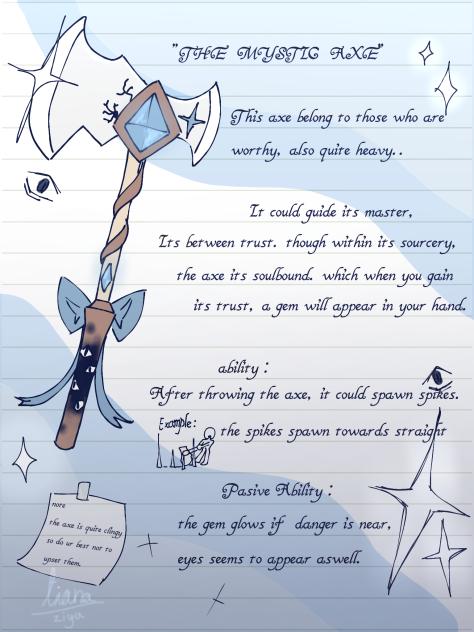 "THE MYSTIC AXE"
This axe belong to those who are
worthy, also quite heavy..
It could guide its master,
Its between trust. though within its sourcery,
the axe its soulbound. which when you gain
its trust, a gem will appear in your hand.
ability :
After throwing the axe, it could spawn spikes.
Example:
the spikes spawn towards straight
Pasive Ability :
the gem glows if danger is near,
eyes seems to appear aswell.
nore
the axe is quite clingy
so do ur best not to
upset them.
liana
ziya